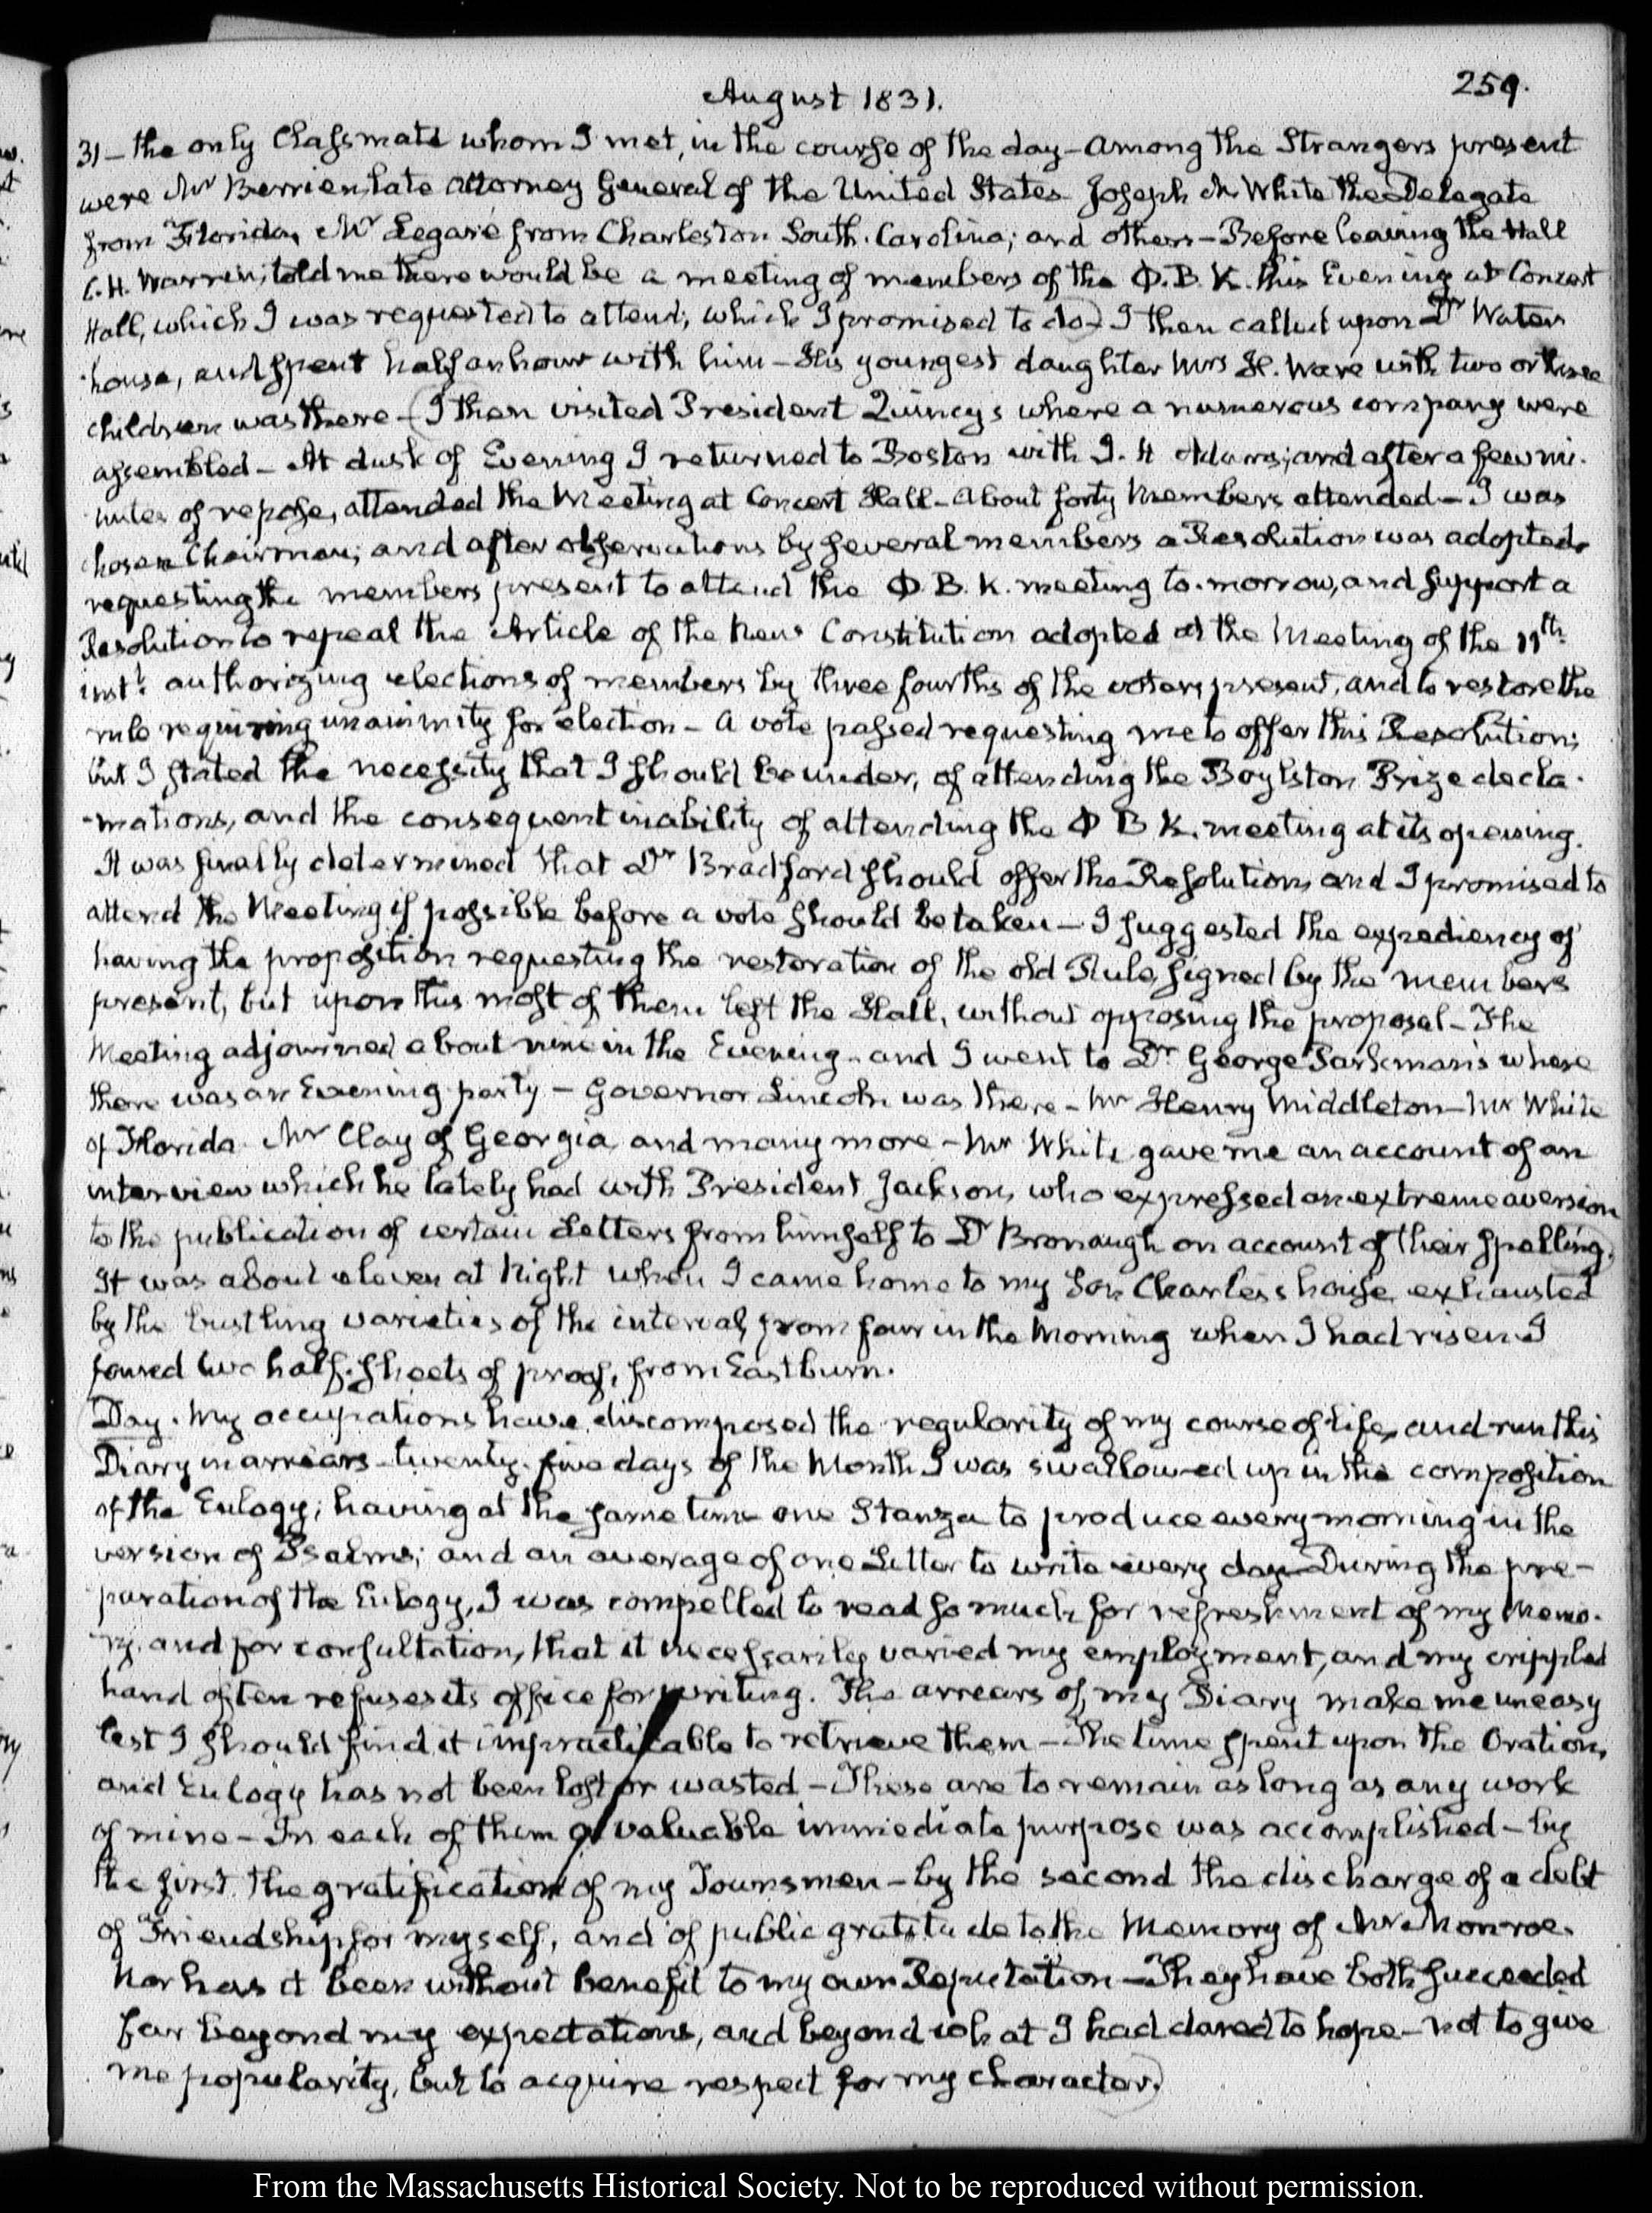 259.
August 1831.
31 — the only Classmate whom I met, in the course of the day — Among the Strangers present
were Mr Berrien, late Attorney General of the United States Joseph M. White the Delegate
from Florida, Mr Legaré from Charleston South Carolina; and others — Before leaving the Hall
C. H. Warren, told me there would be a meeting of members of the Φ. B. K. this Evening at Concert
Hall, which I was requested to attend; which I promised to do — I then called upon Dr Water-
house, and spent half an hour with him — His youngest daughter Mrs H. Ware with two or three
children was there — I then visited President Quincy's where a numerous company were
assembled — At dusk of Evening I returned to Boston with I. H. Adams; and after a few mi-
nutes of repose, attended the Meeting at Concert Hall — About forty members attended — I was
chosen Chairman; and after observations by several members a Resolution was adopted,
requesting the members present to attend the Φ. B. K. meeting to-morrow, and support a
Resolution to repeal the Article of the new Constitution adopted at the Meeting of the 11th
inst. authorizing elections of members by three fourths of the voters present, and to restore the
rule requiring unanimity for election — A vote passed requesting me to offer this Resolution;
but I stated the necessity that I should be under, of attending the Boylston Prize decla-
-mations, and the consequent inability of attending the Φ B K. meeting at its opening.
It was finally determined that Dr Bradford should offer the Resolution, and I promised to
attend the Meeting if possible before a vote should be taken — I suggested the expediency of
having the proposition requesting the restoration of the old Rule, signed by the members
present, but upon this most of them left the Hall, without opposing the proposal — The
Meeting adjourned about nine in the Evening — and I went to Dr George Parkman's where
there was an Evening party — Governor Lincoln was there — Mr Henry Middleton — Mr White
of Florida Mr Clay of Georgia and many more — Mr White gave me an account of an
interview which he lately had with President Jackson, who expressed an extreme aversion
to the publication of certain Letters from himself to Dr Bronaugh on account of their spelling.
It was about eleven at Night when I came home to my Son Charles's house exhausted
by the bustling varieties of the interval, from four in the Morning when I had risen. I
found two half-sheets of proof, from Eastburn.
Day. My occupations have discomposed the regularity of my course of life, and run this
Diary in arrears — twenty-five days of the Month I was swallowed up in the composition
of the Eulogy; having at the same time one Stanza to produce every morning in the
version of Psalms; and an average of one Letter to write every day — During the pre-
paration of the Eulogy, I was compelled to read so much for refreshment of my Memo-
ry, and for consultation, that it necessarily varied my employment, and my crippled
hand often refuses its office for writing. The arrears of my Diary make me uneasy
lest I should find it impracticable to retrieve them — The time spent upon the Oration,
and Eulogy has not been lost or wasted — These are to remain as long as any work
of mine — In each of them a valuable immediate purpose was accomplished — by
the first the gratification of my Townsmen — by the second the discharge of a debt
of Friendship for myself, and of public gratitude to the Memory of Mr Monroe.
Nor has it been without benefit to my own Reputation — They have both succeeded
far beyond my expectations, and beyond what I had dared to hope — not to give
me popularity, but to acquire respect for my character.
From the Massachusetts Historical Society. Not to be reproduced without permission.